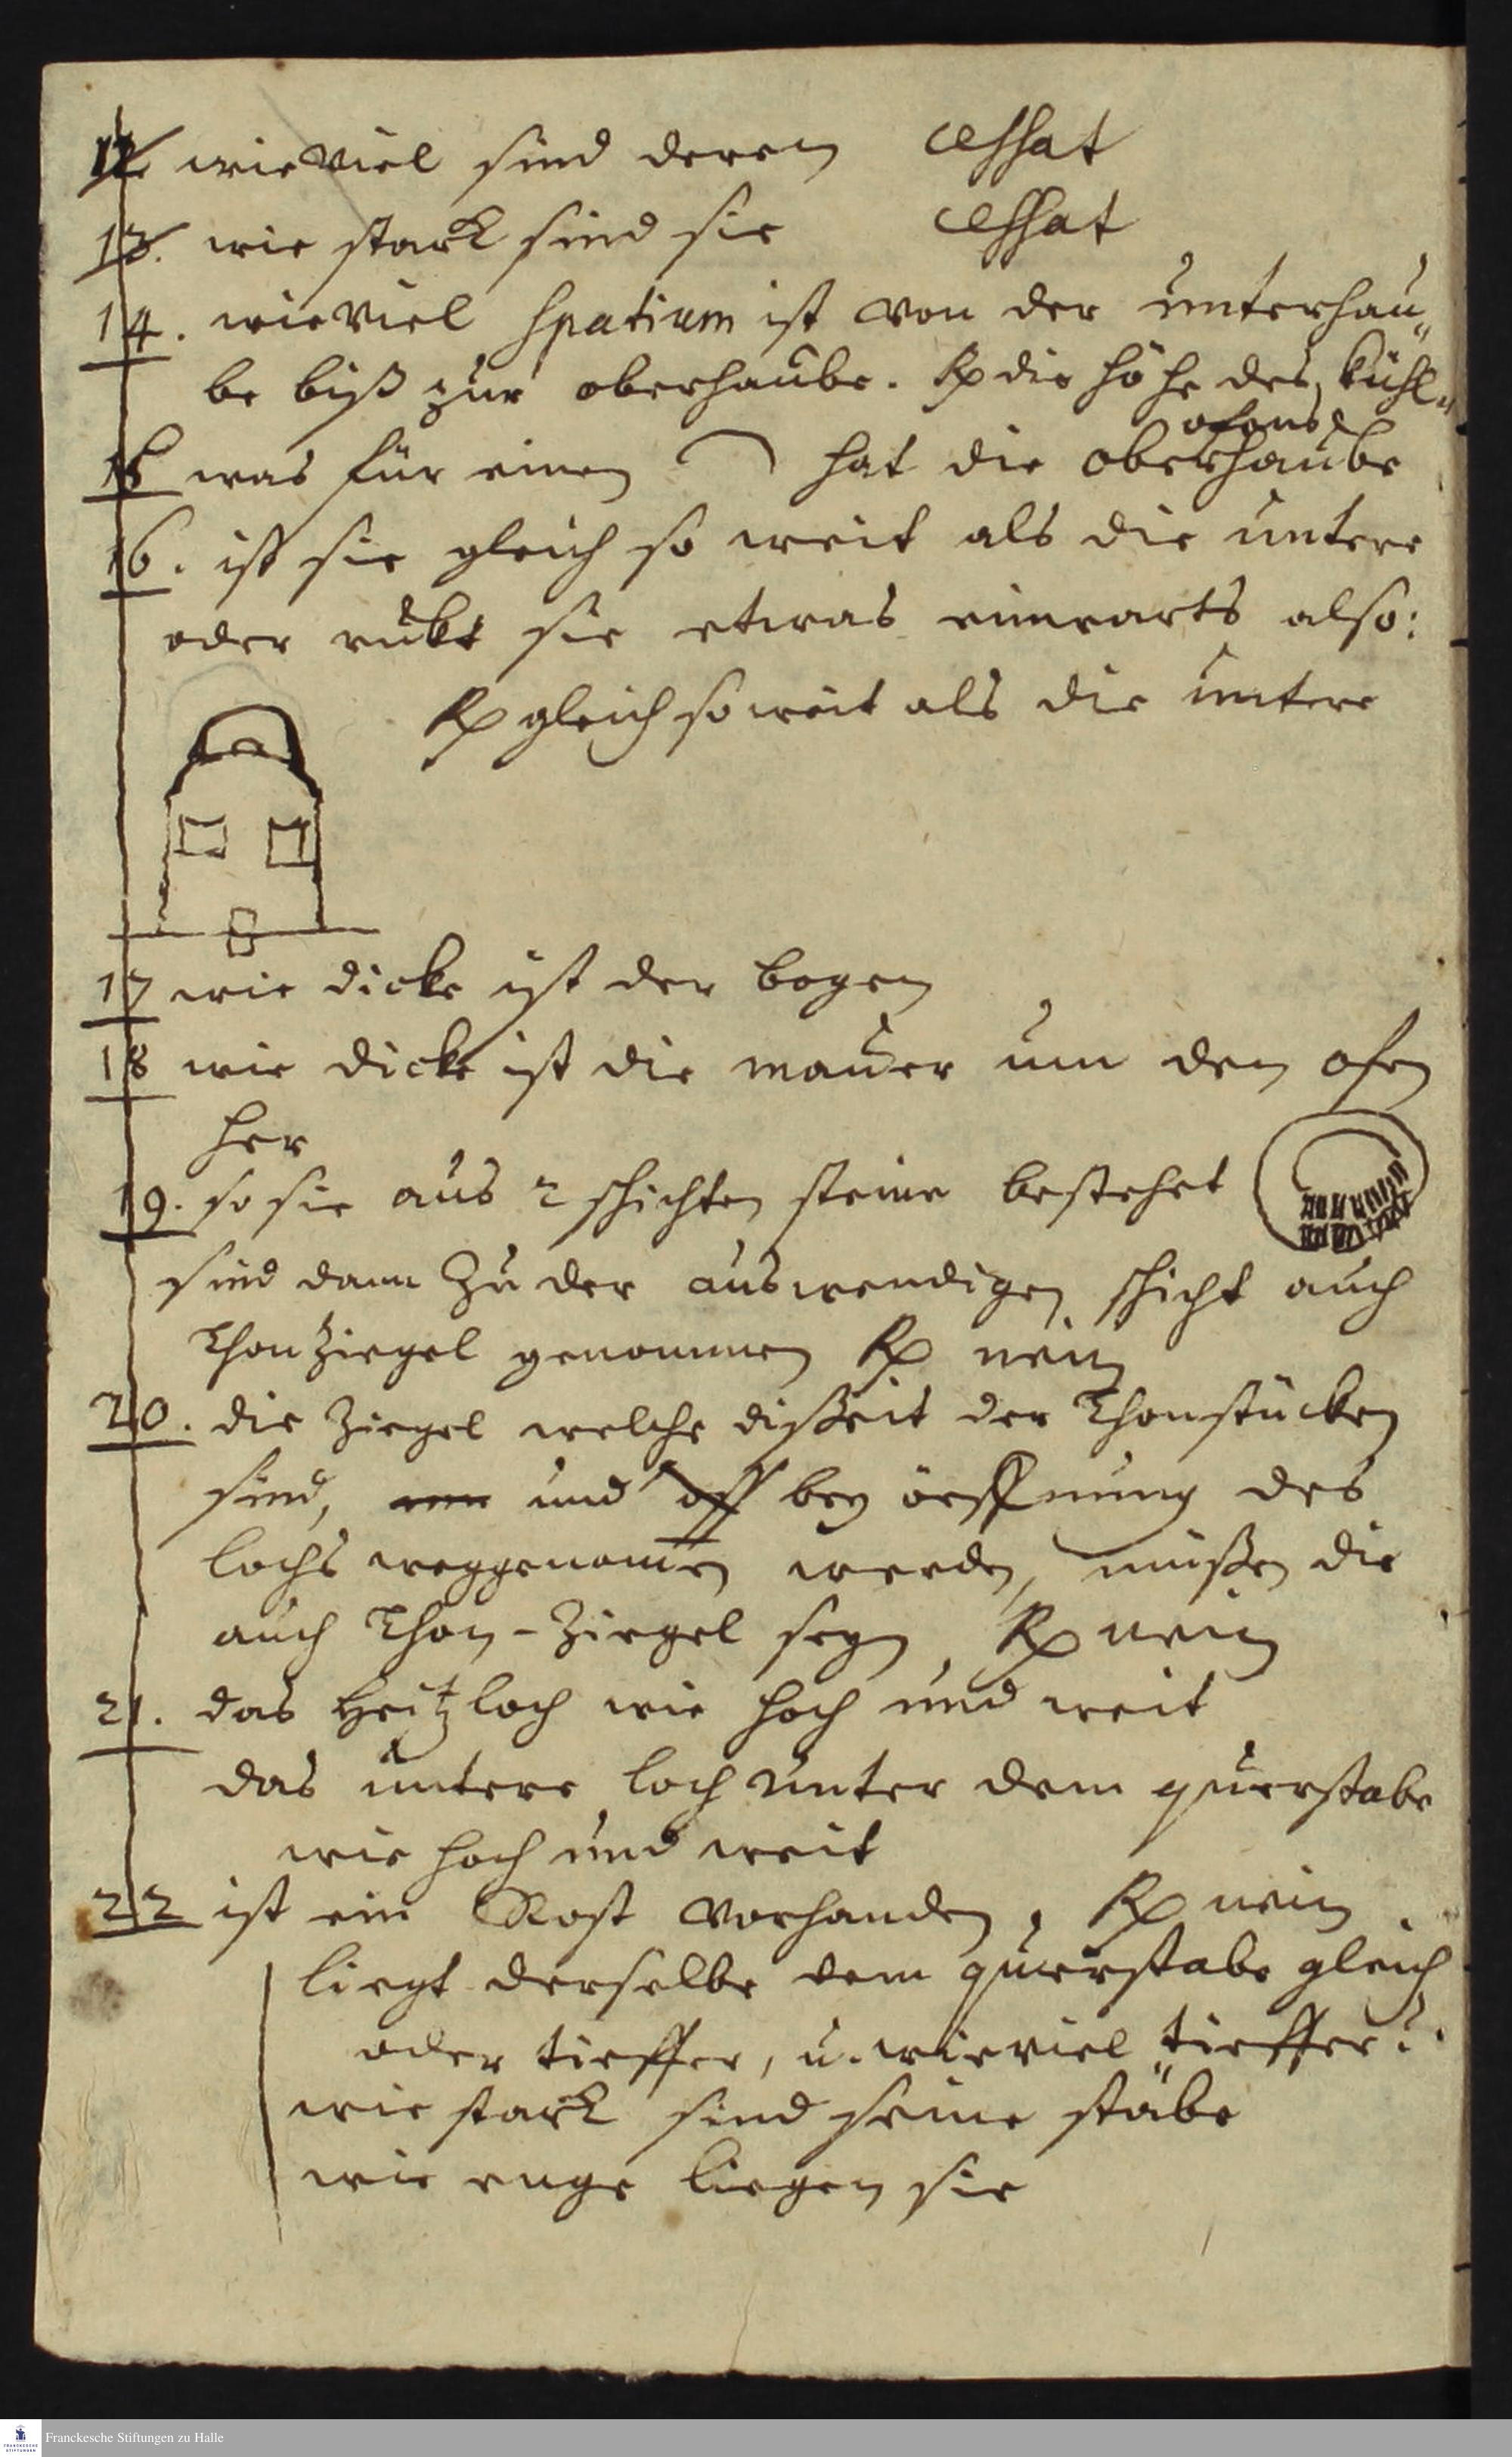 12 wieviel sind deren cessat
13. wie starck sind sie cessat
14. wieviel spatium ist von der unterhau„
be biß zur oberhaube. Rp die höhe des kühl„
ofens
15 was für einen hat die oberhaube
16. ist sie gleich so weit als die untere
oder rükt sie etwas einwarts also:
Rp gleich so weit als die untere
17 wie dicke ist der bogen
18 wie dicke ist die mauer um den ofen
her
19. so sie aus 2 schichten steine bestehet
sind dann Zu der auswendigen schicht auch
Thonziegel genommen Rp nein
20. die Ziegel welche dißeit der Thonstücken
sind, und off bey öeffnung des
lochs weggenom̄en werden, müßen die
auch Thon-Ziegel seyn, Rp nein
21. das Heitzloch wie hoch und weit
das untere loch unter dem querstabe
wie hoch und weit
22 ist ein Rost vorhanden, Rp nein
liegt derselbe dem querstabe gleich
oder tieffer, u. wieviel tieffer?
wie starck sind seine stäbe
wie enge liegen sie
Franckesche Stiftungen zu Halle